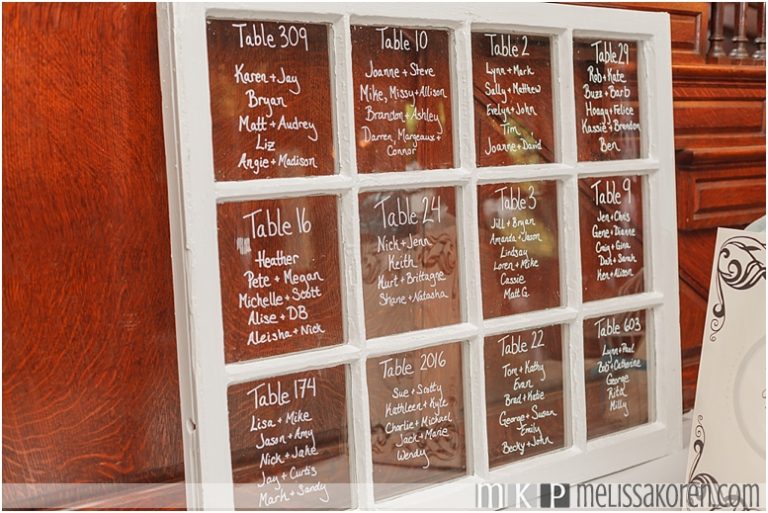 Table 309
Karen + Jay
Bryan
Matt + Audrey
Liz
Angie + Madison
Table 10
Joanne + Steve
Mike, Missy + Allison
Brandon + Ashley
Darren, Margeaux +
Connor
Table 2
Lynn + Mark
Sally + Matthew
Evelyn + John
Tim
Joanne + David
Table 29
Rob + Kate
Buzz + Barb
Hoang + Felice
Kassie + Brendan
Ben
Table 16
Heather
Pete + Megan
Michelle + Scott
Alise + DB
Aleisha + Nick
Table 24
Nick + Jenn
Keith
Kurt + Brittagne
Shane + Natasha
Table 3
Jill + Bryan
Amanda + Jason
Lindsay
Loren + Mike
Cassie
Matt G.
Table 9
Jen + Chris
Gene + Dianne
Craig + Gina
Dan + Sarah
Ken + Alison
Table 174
Lisa + Mike
Jason + Amy
Nick + Jake
Jay + Curtis
Mark + Sandy
Table 2016
Sue + Scotty
Kathleen + Kyle
Charlie + Michael
Jack + Marie
Wendy
Table 22
Tom + Kathy
Evan
Brad + Katie
George + Susan
Emily
Becky + John
Table 603
Lynn + Paul
Bob + Catherine
George
Rita
Milly
MKP melissakoren.com